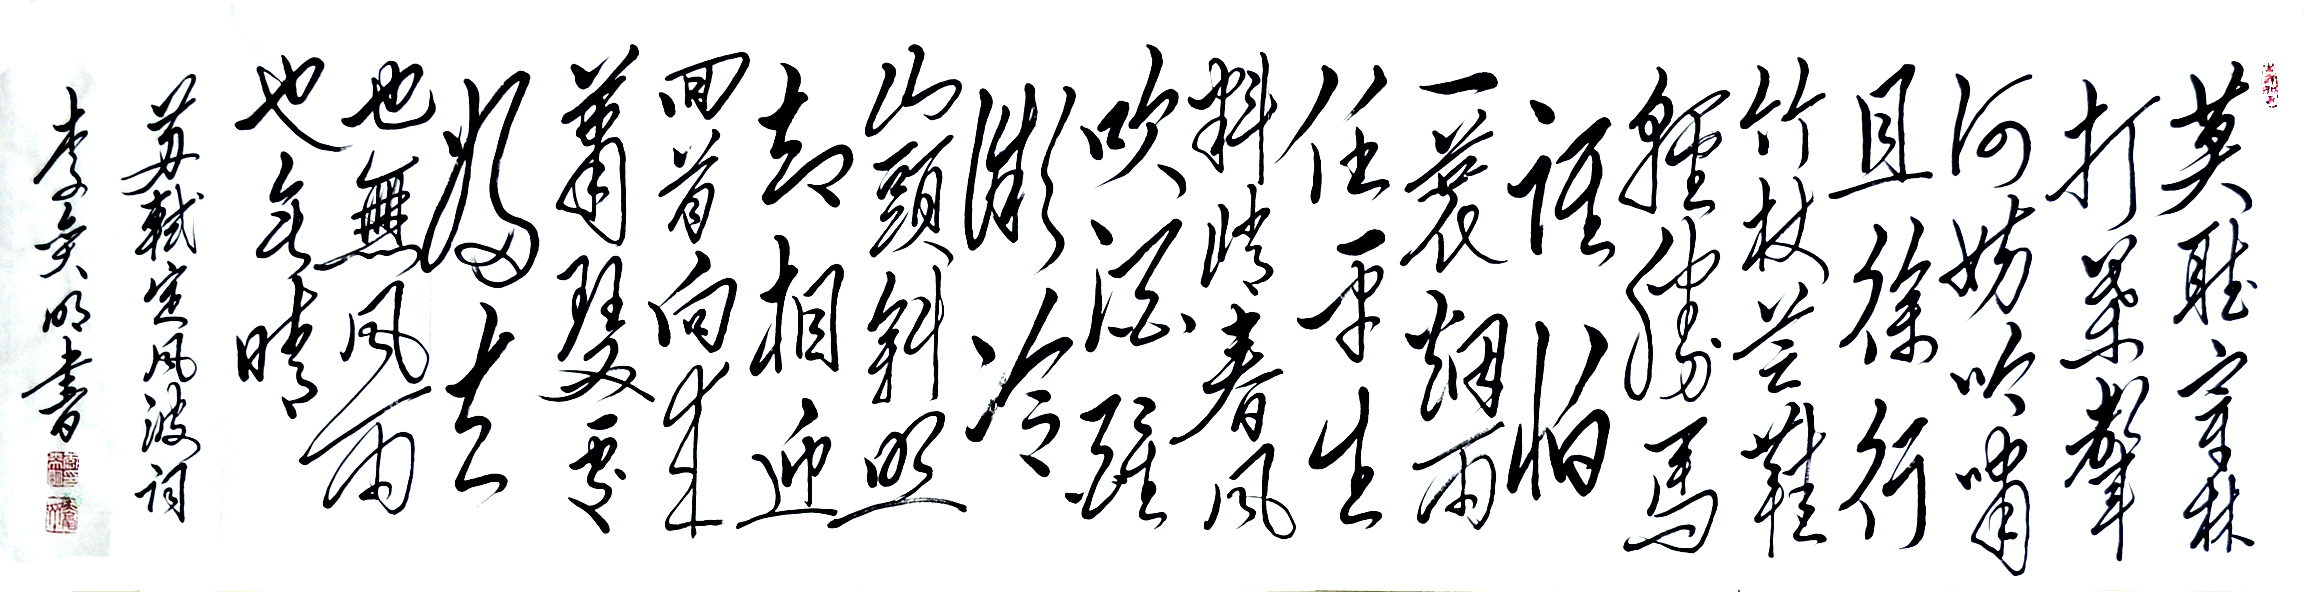 莫聽穿林
打葉聲
何妨吟嘯
且徐行
竹杖芒鞋
輕勝馬
誰怕
一蓑烟雨
任平生
料峭春風
吹酒醒
微冷
山頭斜照
却相迎
回首向來
蕭瑟處
歸去
也無風雨
也无晴
苏軾定風波詞
李奕明書